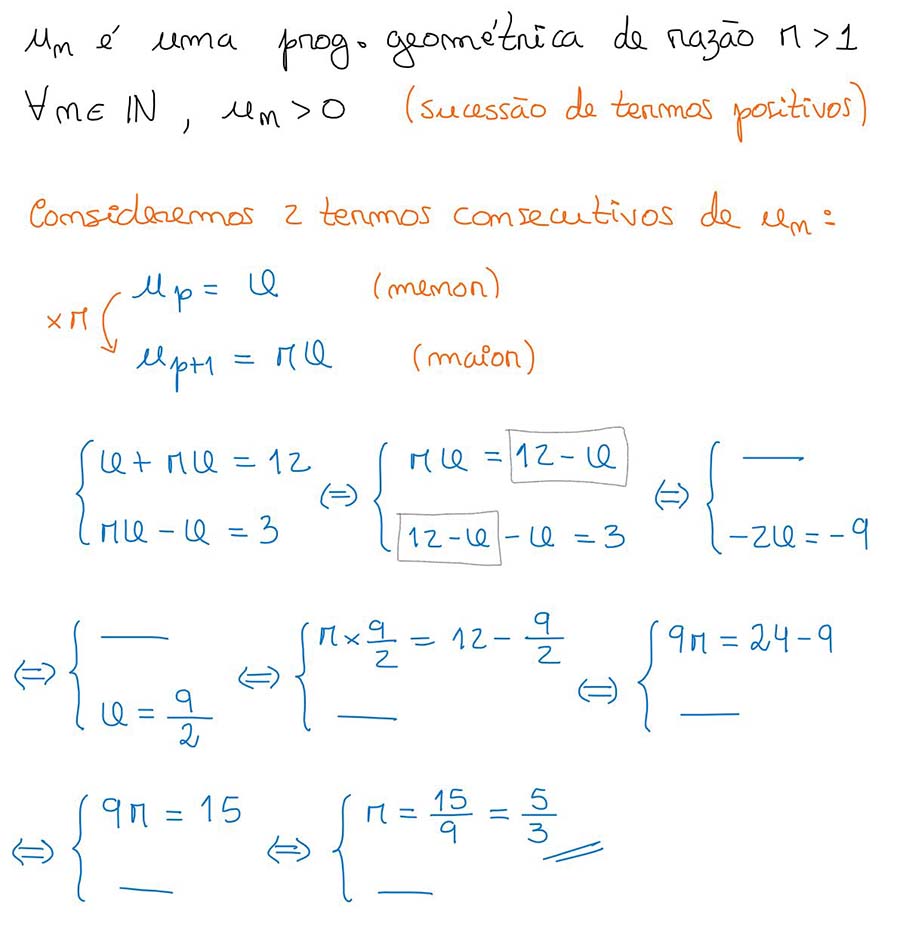 uₙ é uma prog. geométrica de razão r > 1
∀n∈ℕ, uₙ > 0 (sucessão de termos positivos)
Consideremos 2 termos consecutivos de uₙ:
uₚ = a (menor)
×r
uₚ₊₁ = ra (maior)
{ a + ra = 12 ⇔ { ra = 12 - a ⇔ { —
ra - a = 3 12 - a - a = 3 -2a = -9
⇔ { — ⇔ { r × 9/2 = 12 - 9/2 ⇔ { 9r = 24 - 9
a = 9/2 — —
⇔ { 9r = 15 ⇔ { r = 15/9 = 5/3
— —